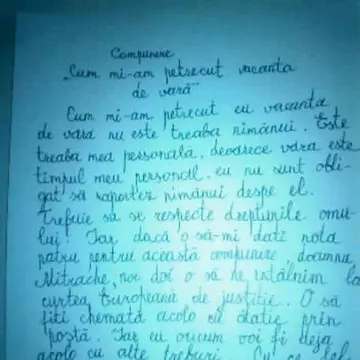 Compunere
„Cum mi-am petrecut vacanta
de vară"
Cum mi-am petrecut eu vacanta
de vara nu este treaba nimănui. Este
treaba mea personala, deoarece vara este
timpul meu personal, eu nu sunt obli-
gat să raportez nimănui despe el.
Trebuie să se respecte drepturile omu-
lui! Iar dacă o să-mi dati nota
patru pentru această compunere, doamna
Mitrache, noi doi o să ne întâlnim la
curtea Europeană de justitie. O să
fiti chemată acolo cu citatie prin
postă. Iar eu oricum voi fi deja
acolo cu alte treburi